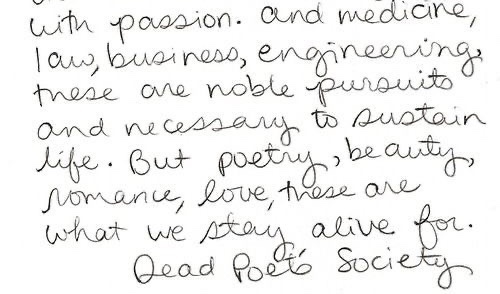 with passion. and medicine,
law, business, engineering,
these are noble pursuits
and necessary to sustain
life. But poetry, beauty,
romance, love, these are
what we stay alive for.
Dead Poet's Society